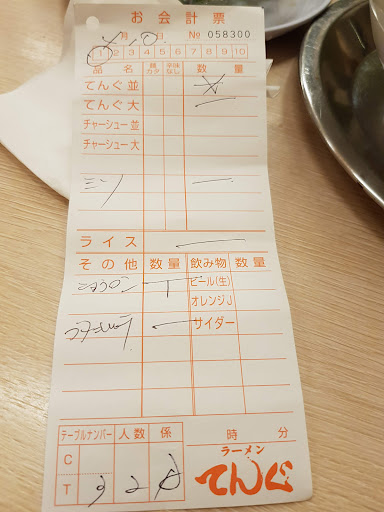 お会計票
月10日 № 058300
1 2 3 4 5 6 7 8 9 10
品名 麺カタ 辛味なし 数量
てんぐ並
てんぐ大 一
チャーシュー並
チャーシュー大
ミソ 一
ライス 一
その他 数量 飲み物 数量
T ビール(生)
オレンジJ
一 サイダー
テーブルナンバー 人数 係
C
T 2
時 分
ラーメン
てんぐ